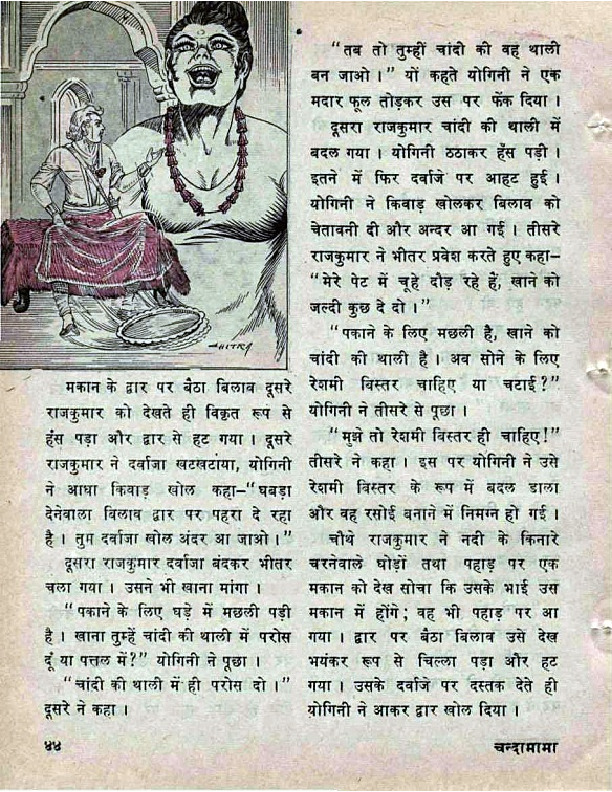 CHITRA
मकान के द्वार पर बैठा बिलाव दूसरे
राजकुमार को देखते ही विकृत रूप से
हँस पड़ा और द्वार से हट गया । दूसरे
राजकुमार ने दर्वाजा खटखटाया, योगिनी
ने आधा किवाड़ खोल कहा–“घबड़ा
देनेवाला बिलाव द्वार पर पहरा दे रहा
है । तुम दर्वाजा खोल अंदर आ जाओ ।”
दूसरा राजकुमार दर्वाजा बंदकर भीतर
चला गया । उसने भी खाना मांगा ।
“पकाने के लिए घड़े में मछली पड़ी
है । खाना तुम्हें चांदी की थाली में परोस
दूं या पत्तल में?” योगिनी ने पूछा ।
“चांदी की थाली में ही परोस दो ।”
दूसरे ने कहा ।
“तब तो तुम्हीं चांदी की वह थाली
बन जाओ ।” यों कहते योगिनी ने एक
मदार फूल तोड़कर उस पर फेंक दिया ।
दूसरा राजकुमार चांदी की थाली में
बदल गया । योगिनी ठठाकर हँस पड़ी ।
इतने में फिर दर्वाजे पर आहट हुई ।
योगिनी ने किवाड़ खोलकर बिलाव को
चेतावनी दी और अन्दर आ गई । तीसरे
राजकुमार ने भीतर प्रवेश करते हुए कहा–
“मेरे पेट में चूहे दौड़ रहे हैं, खाने को
जल्दी कुछ दे दो ।”
“पकाने के लिए मछली है, खाने को
चांदी की थाली है । अब सोने के लिए
रेशमी बिस्तर चाहिए या चटाई?”
योगिनी ने तीसरे से पूछा ।
“मुझे तो रेशमी बिस्तर ही चाहिए!”
तीसरे ने कहा । इस पर योगिनी ने उसे
रेशमी बिस्तर के रूप में बदल डाला
और वह रसोई बनाने में निमग्न हो गई ।
चौथे राजकुमार ने नदी के किनारे
चरनेवाले घोड़ों तथा पहाड़ पर एक
मकान को देख सोचा कि उसके भाई उस
मकान में होंगे; वह भी पहाड़ पर आ
गया । द्वार पर बैठा बिलाव उसे देख
भयंकर रूप से चिल्ला पड़ा और हट
गया । उसके दर्वाजे पर दस्तक देते ही
योगिनी ने आकर द्वार खोल दिया ।
४४
चन्दामामा